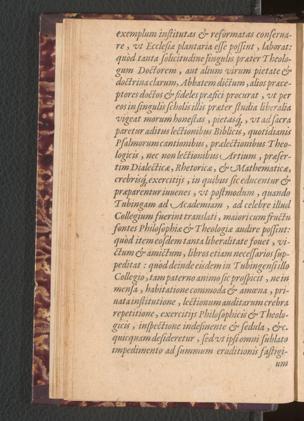 exemplum institutas & reformatas conserua-
re, vt Ecclesiæ plantaria esse possint, laborat:
quòd tanta solicitudine singulis præter Theolo-
gum Doctorem, aut alium virum pietate &
doctrina clarum, Abbatem dictum, alios præce-
ptores doctos & fideles præfici procurat, vt per
eos in singulis scholis illis præter studia liberalia
vigeat morum honestas, pietasq́;, vt ad sacra
paretur aditus lectionibus Biblicis, quotidianis
Psalmorum cantionibus, prælectionibus Theo-
logicis, nec non lectionibus Artium, præser-
tim Dialecticæ, Rhetoricæ, & Mathematicæ,
crebrisq́; exercitijs, in quibus sic educentur &
præparentur iuuenes, vt postmodum, quando
Tubingam ad Academiam, ad celebre illud
Collegium fuerint translati, maiori cum fructu
fontes Philosophiæ & Theologiæ audire possint:
quòd item eosdem tanta liberalitate fouet, vi-
ctum & amictum, libros etiam necessarios sup-
peditat: quòd deinde eisdem in Tubingensi illo
Collegio, tam paterno animo sic prospicit, ne in
mensa, habitatione commoda & amœna, pri-
uata institutione, lectionum auditarum crebra
repetitione, exercitijs Philosophicis & Theolo-
gicis, inspectione indesinente & sedula, &c.
quicquam desideretur, sed vt ipsi omni sublato
impedimento ad summum eruditionis fastigi-
um